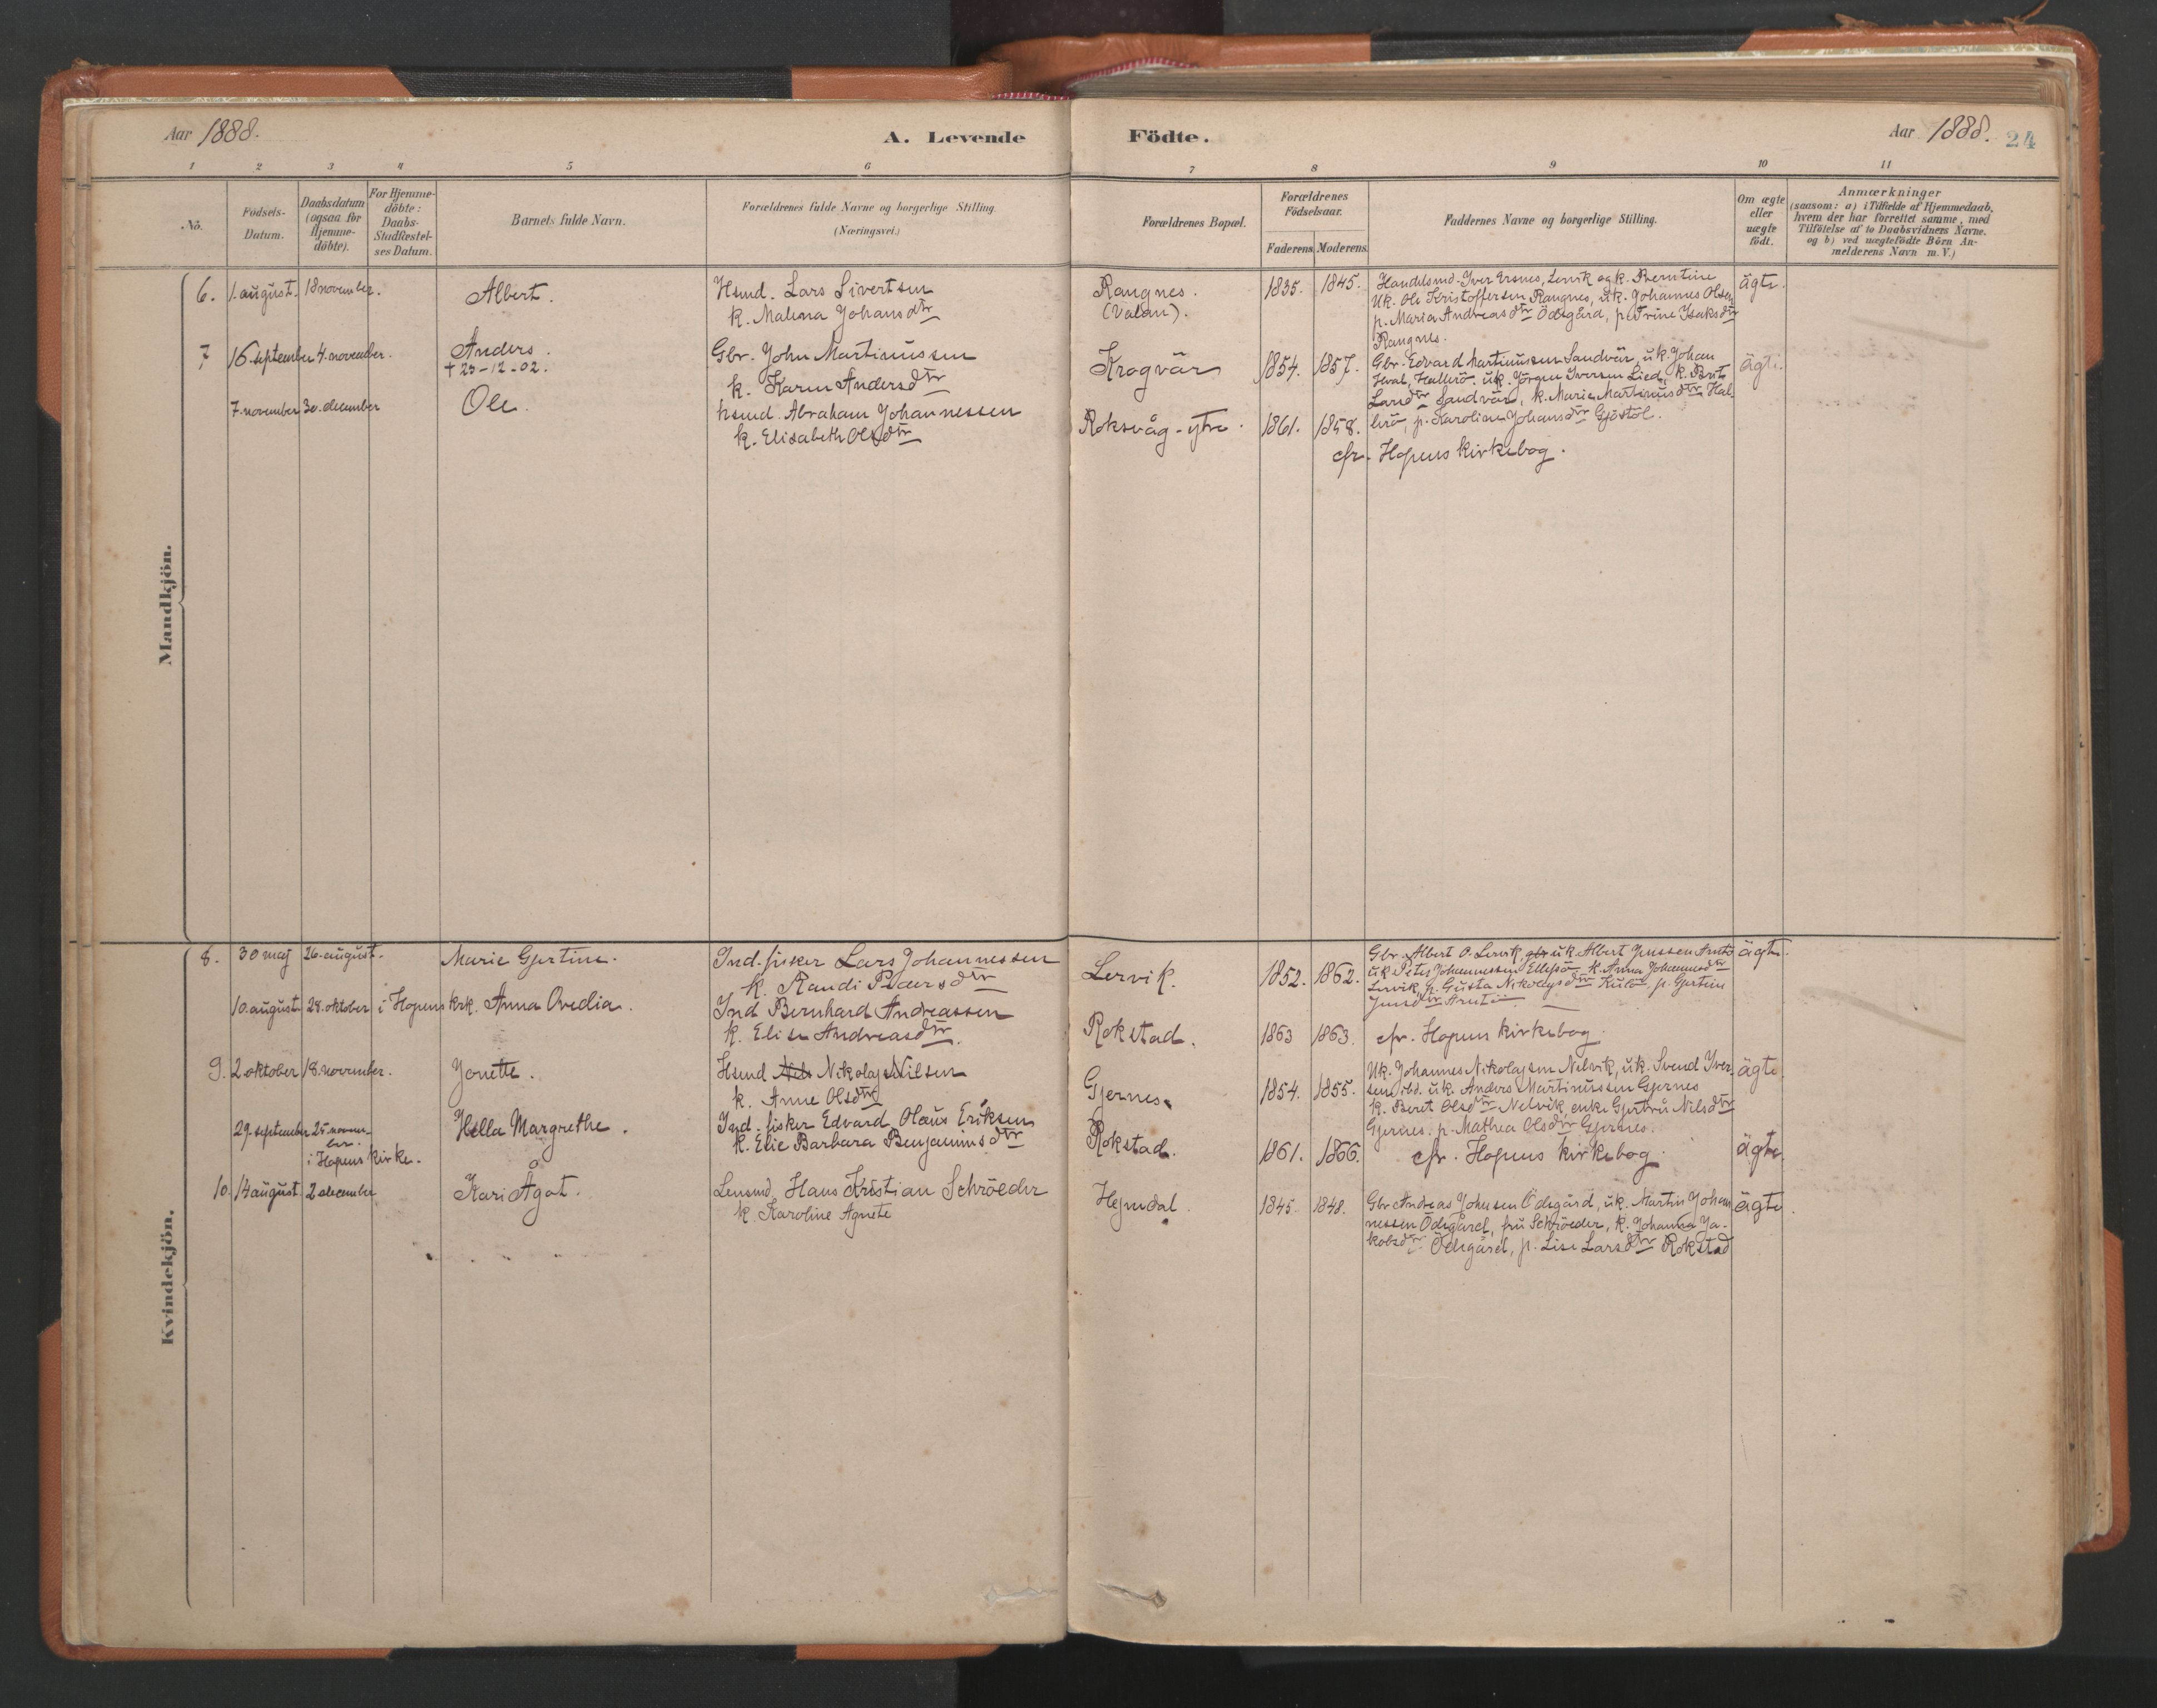 Aar 1888.
A. Levende
Födte.
Aar 1888. 24
1 2 3 4 5 6
7 8 9 10 11
No.
Födsels-
Datum.
Daabsdatum
(ogsaa for
Hjemme-
döbte).
For Hjemme-
döbte:
Daabs-
Stadfæstel-
ses Datum.
Barnets fulde Navn.
Forældrenes fulde Navne og borgerlige Stilling.
(Næringsvei.)
Forældrenes Bopæl.
Forældrenes
Födselsaar.
Faderens. Moderens.
Faddernes Navne og borgerlige Stilling.
Om ægte
eller
uægte
födt.
Anmærkninger
(saasom: a) i Tilfælde af Hjemmedaab,
hvem der har forrettet samme, med
Tilföielse af to Daabsvidners Navne.
og b) ved uægtefödte Börn An-
melderens Navn m. V.)
Mandkjön.
6. 1. august. 18 november. Albert.
Hsmd. Lars Sivertsen
k. Malena Johansdtr
Rangnes.
(Valan).
1835. 1845.
Handelsmd. Iver Ersnes, Lervik og k. Berntine
Uk. Ole Kristoffersen Rangnes, uk. Johannes Olsen
p. Maria Andreasdtr Ödegård, p. Trine Isaksdtr
Rangnes.
ägte.
7 16. september 4. november. Anders.
+ 25-12-02.
Gbr. John Martinussen
k. Karen Andersdtr
Krogvär
1854. 1857.
Gbr. Edvard Martinussen Sandvär, uk. Johan
Hval, Hallerö. uk. Jörgen Iversen Lied, k. Brit
Larsdtr Sandvär, k. Marie Martinusdtr Hal
lerö, p. Karoline Johansdtr Gjöstöl.
ägte.
7. november 30. december Ole.
Husmd. Abraham Johannessen
k. Elisabeth Olsdtr
Roksvåg-ytre.
1861. 1858.
cfr. Hopens kirkebog.
Kvindekjön.
8. 30 maj 26. august. Marie Gjertine.
Ind. fisker Lars Johannessen
k. Randi Pedersdtr
Lervik.
1852. 1862.
Gbr. Albert O. Lervik, gbr uk. Albert Jenssen
uk Peter Johannessen k. Anna Johannesdtr
Lervik, p. Gusta Nikolaysdtr p. Gjertine
Jensdtr
ägte.
10. august 28. oktober i Hopens krk. Anna Ovedia.
Ind Bernhard Andreassen
k. Elise Andreasdtr.
Rokstad.
1863 1863.
cfr. Hopens kirkebog
9. 2 oktober 18. november. Jonette.
Hsmd Nels Nikolaj Nilsen
k. Anne Olsdtr
Gjernes.
1854. 1855.
Uk. Johannes Nikolajsen Nelvik, uk. Svend Iver
sen ibd. uk. Anders Martinussen Gjernes
k. Beret Olsdtr Nelvik, enke Gjertru Nilsdtr
Gjernes. p. Mathea Olsdtr Gjernes.
ägte.
29. september 25 novem-
ber.
i Hopens kirke.
Hella Margrethe.
Ind. fisker Edvard Olaus Eriksen
k. Elie Barbara Benjaminsdtr
Rokstad.
1861. 1866.
cfr. Hopens kirkebog.
ägte.
10. 14 august 2 december Kari Ågot.
Lensmd Hans Kristian Schröeder
k. Karoline Agnete
Hejmdal.
1845. 1848.
Gbr Andreas Johnsen Ödegård, uk. Martin Johan
nessen Ödegård, fru Schröeder, k. Johanna Ja-
kobsdtr Ödegård, p. Lise Larsdtr Rokstad
ägte.